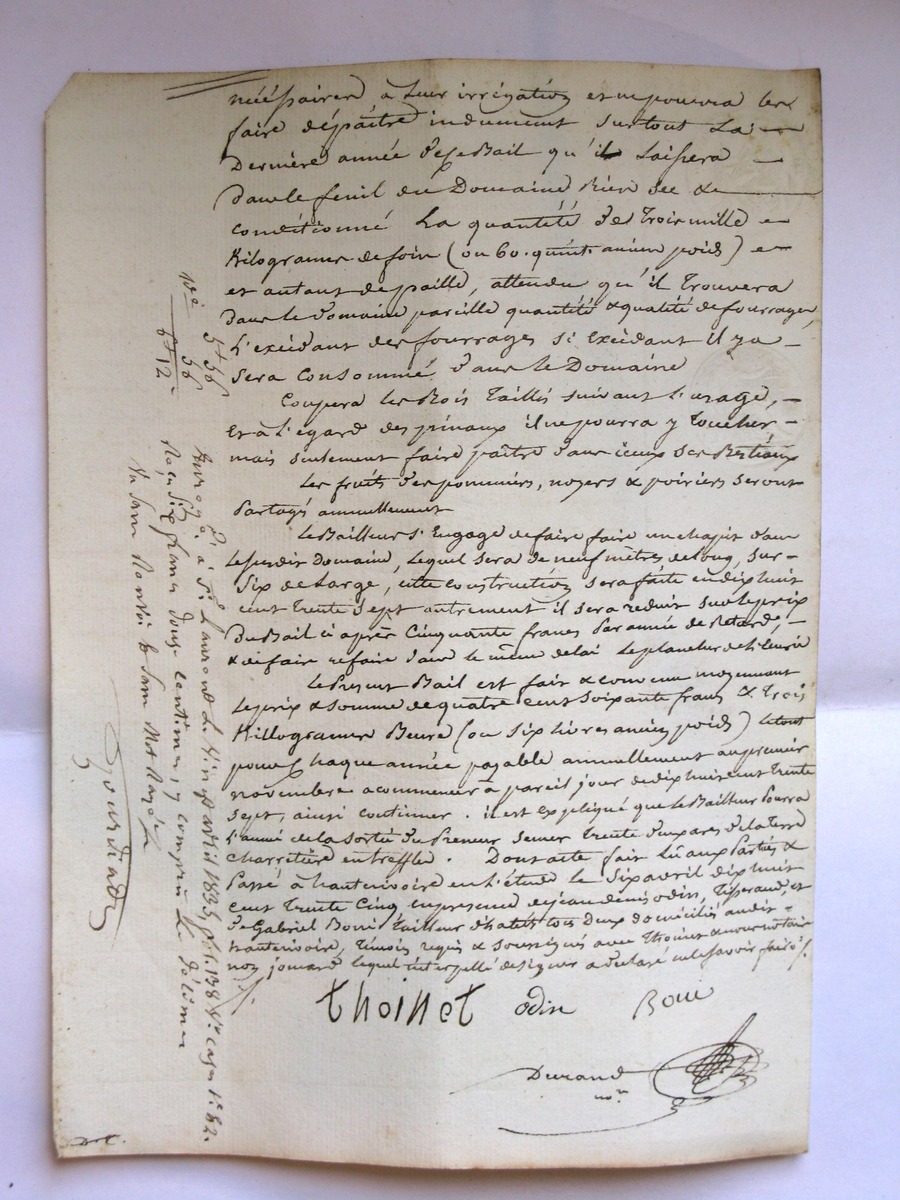 nécéssaires à leur irrigation et ne pourra les
faire dépaître indument surtout la
Dernière année de ce Bail qu'il Laissera
Dans le fenil du Domaine Bien sec &
conditionné La quantité de Trois mille
Kilogrames de foin (ou 60. quint. ancien poids)
et autant de paille, attendu qu'il Trouvera
Dans le Domaine pareille quantité & qualité de fourrages,
L'excédant des fourrages si excédant il y a
Sera Consommé Dans le Domaine
Coupera les Bois Taillis suivant l'usage,
Et à L'égard des pinaux il ne pourra y Toucher
mais seulement faire paître dans iceux ses Bestiaux
Les fruits des pommiers, noyers & poiriers seront
Partagés annuellement
Le Bailleur s'Engage de faire faire un chapit dans
Le susdit Domaine, Lequel sera de neuf mètres de Long, sur
Six de Large, cette construction sera faite en dix huit
cent Trente Sept autrement il sera réduit sur le prix
Du Bail ci après Cinquante francs Par année de Retard,
& de faire refaire dans le même délai Le plancher de l'écurie
Le Present Bail est fait & convenu moyennant
Le prix & somme de quatre cent soixante francs & Trois
Killogrames Beure (ou six livres ancien poids) le tout
pour Chaque année payable annuellement au premier
novembre a commencer à pareil jour de dix huit cent Trente
sept, ainsi continuer. il est Expliqué que Le Bailleur Pourra
L'année de la sortie du Preneur semer Trente deux ares de la terre
charretière en treffle. Dont acte fait Lû aux Parties &
Passé à hauterivoire en l'étude Le six avril dix huit
cent Trente Cinq en presence de jean denis odin, Tisserand, et
de Gabriel Boui Tailleur d'habits tous Deux domiciliés audit
hauterivoire, Témoins requis & soussignés avec Thoinet & nous notaire
non jomard lequel interpellé de signer a déclaré ne le savoir faire
thoinet odin Boui
Durand
nore
5f 56
56
6f 12
Enregé. à St. Laurent le Vingt avril 1835 fo. 138 Vo. case 1re & 2.
Reçu six francs douze centimes, y compris le Décime